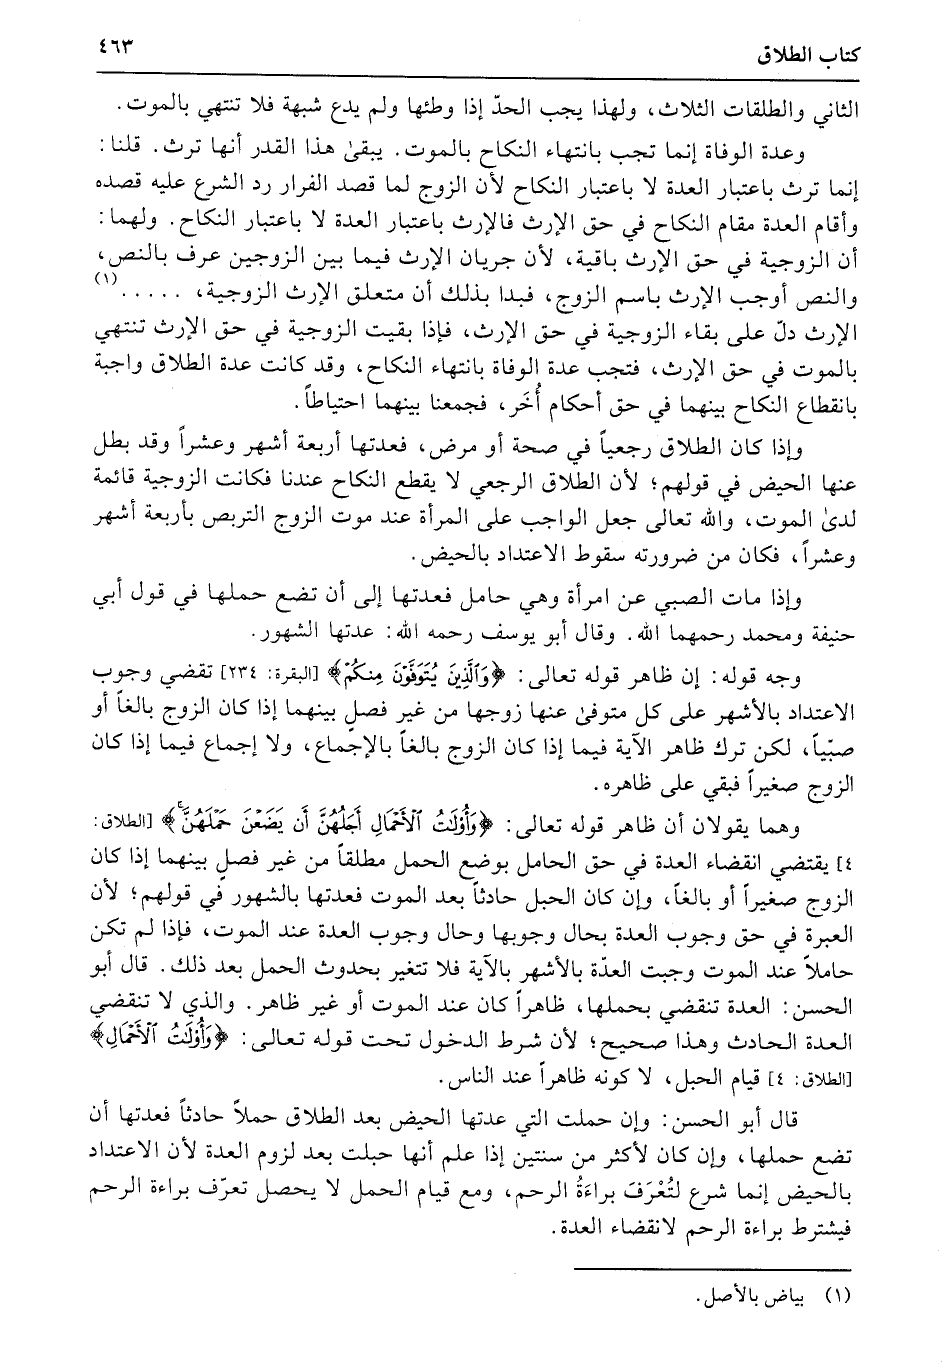 كتاب الطلاق
٤٦٣
الثاني والطلقات الثلاث، ولهذا يجب الحدّ إذا وطئها ولم يدع شبهة فلا تنتهي بالموت.
وعدة الوفاة إنما تجب بانتهاء النكاح بالموت. يبقىٰ هذا القدر أنها ترث. قلنا:
إنما ترث باعتبار العدة لا باعتبار النكاح لأن الزوج لما قصد الفرار رد الشرع عليه قصده
وأقام العدة مقام النكاح في حق الإرث فالإرث باعتبار العدة لا باعتبار النكاح. ولهما:
أن الزوجية في حق الإرث باقية، لأن جريان الإرث فيما بين الزوجين عرف بالنص،
والنص أوجب الإرث باسم الزوج، فبدا بذلك أن متعلق الإرث الزوجية، .....(١)
الإرث دلّ على بقاء الزوجية في حق الإرث، فإذا بقيت الزوجية في حق الإرث تنتهي
بالموت في حق الإرث، فتجب عدة الوفاة بانتهاء النكاح، وقد كانت عدة الطلاق واجبة
بانقطاع النكاح بينهما في حق أحكام أُخَر، فجمعنا بينهما احتياطاً.
وإذا كان الطلاق رجعياً في صحة أو مرض، فعدتها أربعة أشهر وعشراً وقد بطل
عنها الحيض في قولهم؛ لأن الطلاق الرجعي لا يقطع النكاح عندنا فكانت الزوجية قائمة
لدىٰ الموت، والله تعالى جعل الواجب على المرأة عند موت الزوج التربص بأربعة أشهر
وعشراً، فكان من ضرورته سقوط الاعتداد بالحيض.
وإذا مات الصبي عن امرأة وهي حامل فعدتها إلى أن تضع حملها في قول أبي
حنيفة ومحمد رحمهما الله. وقال أبو يوسف رحمه الله: عدتها الشهور.
وجه قوله: إن ظاهر قوله تعالى: ﴿وَٱلَّذِينَ يُتَوَفَّوْنَ مِنكُمْ﴾ [البقرة: ٢٣٤] تقضي وجوب
الاعتداد بالأشهر على كل متوفىٰ عنها زوجها من غير فصلٍ بينهما إذا كان الزوج بالغاً أو
صبّياً، لكن ترك ظاهر الآية فيما إذا كان الزوج بالغاً بالإجماع، ولا إجماع فيما إذا كان
الزوج صغيراً فبقي على ظاهره.
وهما يقولان أن ظاهر قوله تعالى: ﴿وَأُوْلَٰتُ ٱلْأَحْمَالِ أَجَلُهُنَّ أَن يَضَعْنَ حَمْلَهُنَّۚ﴾ [الطلاق:
٤] يقتضي انقضاء العدة في حق الحامل بوضع الحمل مطلقاً من غير فصلٍ بينهما إذا كان
الزوج صغيراً أو بالغاً، وإن كان الحبل حادثاً بعد الموت فعدتها بالشهور في قولهم؛ لأن
العبرة في حق وجوب العدة بحال وجوبها وحال وجوب العدة عند الموت، فإذا لم تكن
حاملاً عند الموت وجبت العدّة بالأشهر بالآية فلا تتغير بحدوث الحمل بعد ذلك. قال أبو
الحسن: العدة تنقضي بحملها، ظاهراً كان عند الموت أو غير ظاهر. والذي لا تنقضي
العدة الحادث وهذا صحيح؛ لأن شرط الدخول تحت قوله تعالى: ﴿وَأُوْلَٰتُ ٱلْأَحْمَالِ﴾
[الطلاق: ٤] قيام الحبل، لا كونه ظاهراً عند الناس.
قال أبو الحسن: وإن حملت التي عدتها الحيض بعد الطلاق حملاً حادثاً فعدتها أن
تضع حملها، وإن كان لأكثر من سنتين إذا علم أنها حبلت بعد لزوم العدة لأن الاعتداد
بالحيض إنما شرع لتُعْرَفَ براءَةُ الرحم، ومع قيام الحمل لا يحصل تعرّف براءة الرحم
فيشترط براءة الرحم لانقضاء العدة.
(١) بياض بالأصل.